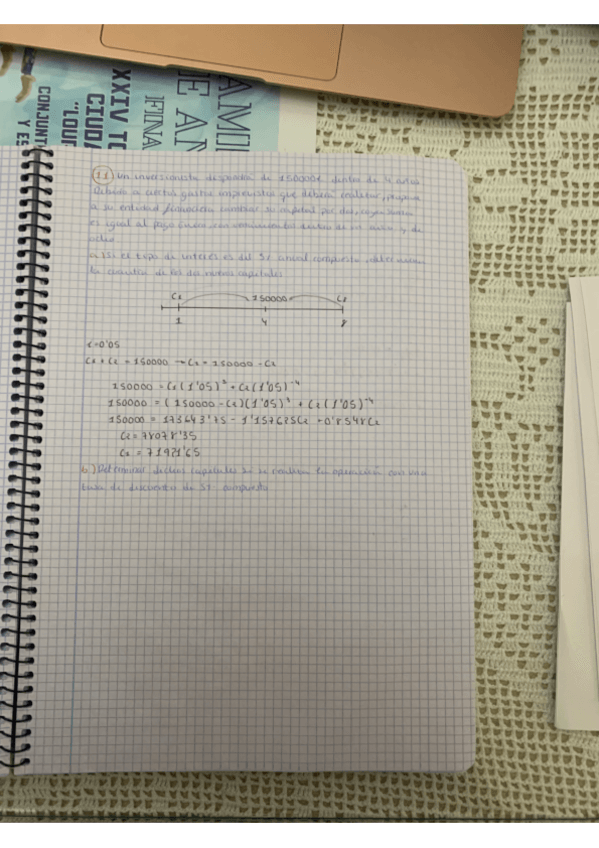 AMI
E AN
FINA
XXIV TO
CIUDA
"LOUR
CONJUNT
Y ES
11) Un inversionista dispondrá de 150000€ dentro de 4 años
Debido a ciertos gastos imprevistos que deberá realizar, propone
a su entidad financiera cambiar su capital por dos, cuya suma
es igual al pago único, con vencimiento dentro de un año y de
ocho
a) Si el tipo de interés es del 5% anual compuesto, determinar
la cuantía de los dos nuevos capitales
C1 150000 C2
1 4 8
i=0'05
C1 + C2 = 150000 → C1 = 150000 - C2
150000 = C1 (1'05)³ + C2 (1'05)⁻⁴
150000 = (150000 - C2)(1'05)³ + C2 (1'05)⁻⁴
150000 = 173643'75 - 1'157625C2 + 0'8548C2
C2 = 78078'35
C1 = 71921'65
b) Determinar dichos capitales si se realiza la operación con una
tasa de descuento de 5% compuesto